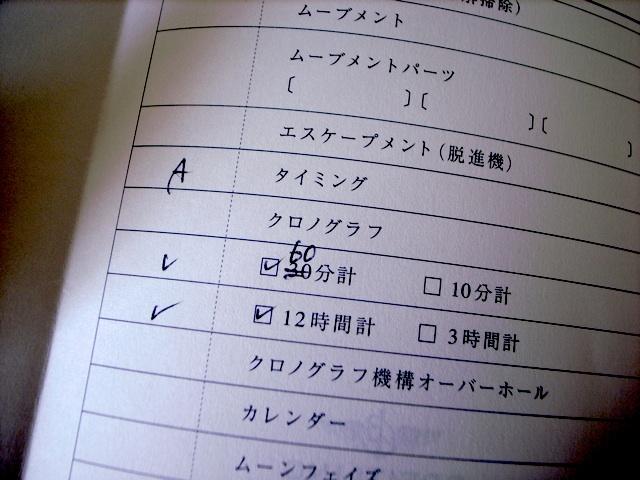 掃除)
ムーブメント
ムーブメントパーツ
〔 〕〔 〕〔 〕
エスケープメント(脱進機)
A タイミング
クロノグラフ
60
✓ ☑ 30分計 □ 10分計
✓ ☑ 12時間計 □ 3時間計
クロノグラフ機構オーバーホール
カレンダー
ムーンフェイズ